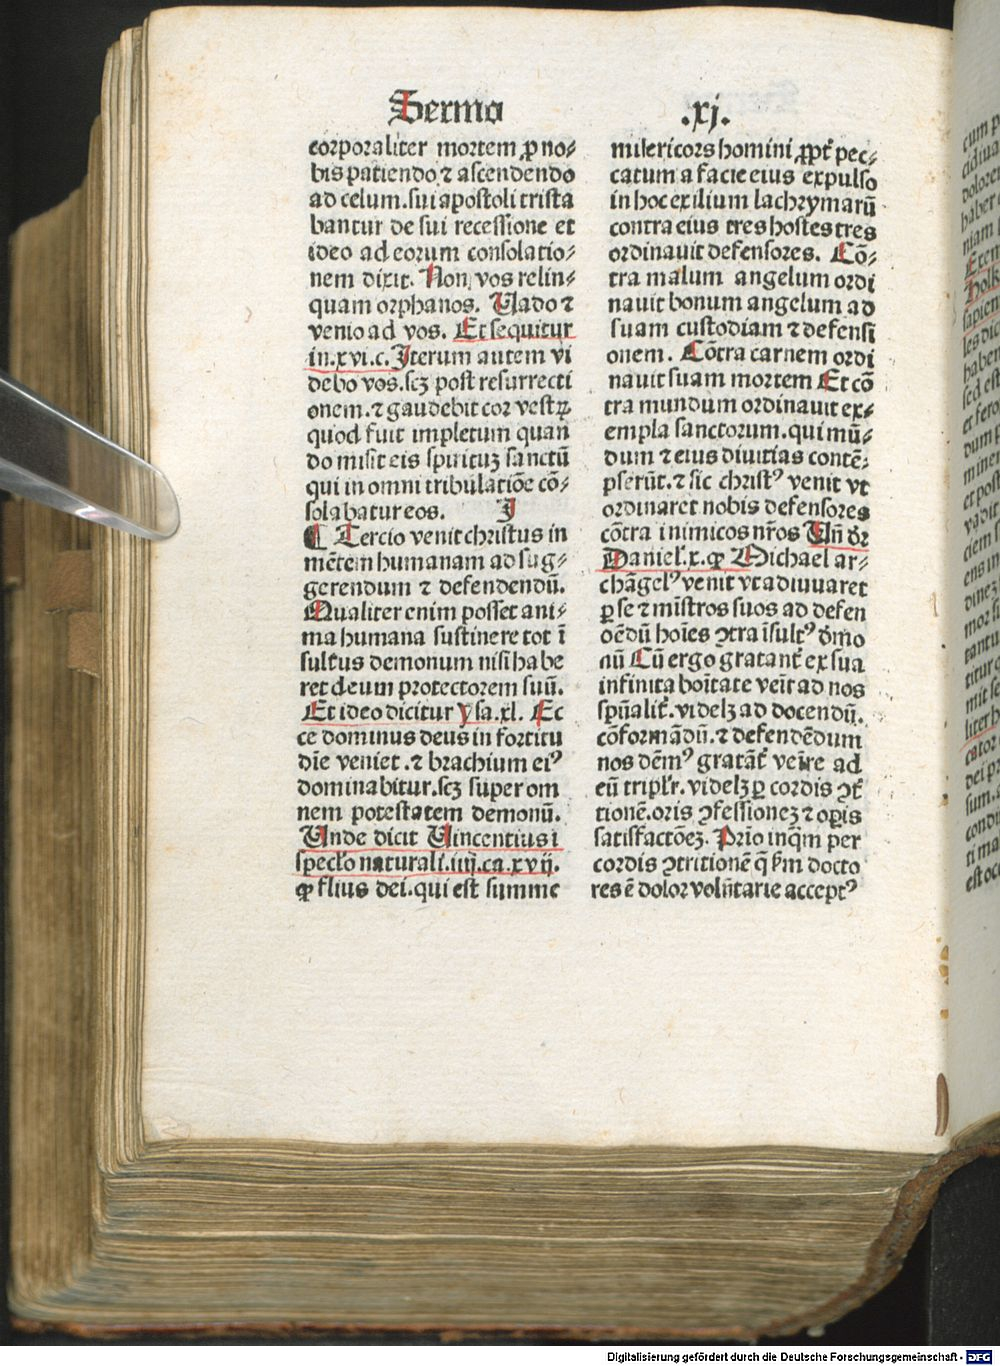 Sermo .xj.
corporaliter mortem ꝓ no⸗
bis patiendo ⁊ ascendendo
ad celum. sui apostoli trista
bantur de sui recessione et
ideo ad eorum consolatio⸗
nem dixit. Non vos relin⸗
quam orphanos. Uado ⁊
venio ad vos. Et sequitur
in.xvi.c. Iterum autem vi
debo vos. scꝫ post resurrecti
onem. ⁊ gaudebit cor vestꝝ
quod fuit impletum quan
do misit eis spirituꝫ sanctū
qui in omni tribulatiōe cō⸗
solabatur eos. I
¶ Tercio venit christus in
mētem humanam ad sug⸗
gerendum ⁊ defendendū.
Qualiter enim posset ani⸗
ma humana sustinere tot ī
sultus demonum nisi habe
ret deum protectorem suū.
Et ideo dicitur Ysa.xl. Ec
ce dominus deus in fortitu
die veniet. ⁊ brachium eiꝰ
dominabitur. scꝫ super om
nem potestatem demonū.
Unde dicit Uincentius i
specło naturali.iiij.ca.xvij.
ꝙ flius dei. qui est summe
misericors homini ꝓpt̄ pec⸗
catum a facie eius expulso
in hoc exilium lachrymarū
contra eius tres hostes tres
ordinauit defensores. Cō⸗
tra malum angelum ordi
nauit bonum angelum ad
suam custodiam ⁊ defensi
onem. Cōtra carnem ordi
nauit suam mortem Et cō
tra mundum ordinauit ex⸗
empla sanctorum. qui mū⸗
dum ⁊ eius diuitias contē⸗
pserūt. ⁊ sic christꝰ venit vt
ordinaret nobis defensores
cōtra inimicos nr̄os Un̄ dr̄
Daniel.x. ꝙ Michael ar⸗
chāgelꝰ venit vt adiuuaret
ꝑ se ⁊ mīstros suos ad defen
dēdū hoīes ꝯtra īsultꝰ dmo
nū Cū ergo gratant̄ ex sua
infinita boītate veīt ad nos
spūalit̄. videlꝫ ad docendū.
cōformādū. ⁊ defendēdum
nos dēmꝰ gratāt̄ veīre ad
eū tripłr. videlꝫ ꝑ cordis ꝯt̄
tionē. oris ꝯfessioneꝫ ⁊ oꝑis
satisfactōeꝫ. Prīo inq̄m per
cordis ꝯtritionē q̄ ẜm docto
res ē dolor volūtarie acceptꝰ
Digitalisierung gefördert durch die Deutsche Forschungsgemeinschaft - DFG